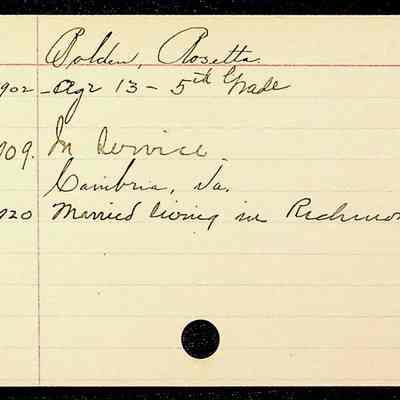 Bolden, Rosetta.
902 - Age 13 - 5th Grade
909. In Service.
Cambria, Va.
920 Married living in Richmon